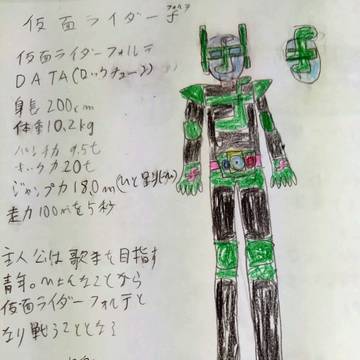 仮面ライダー
フォルテ
仮面ライダーフォルテ
DATA(ロックチューン)
身長200cm
体重10,2kg
パンチ力 9.5t
キック力20t
ジャンプ力 18,0m(ひと跳び)
走力100mを5秒
主人公は歌手を目指す
青年。ひょんなことから
仮面ライダーフォルテと
なり戦うこととなる